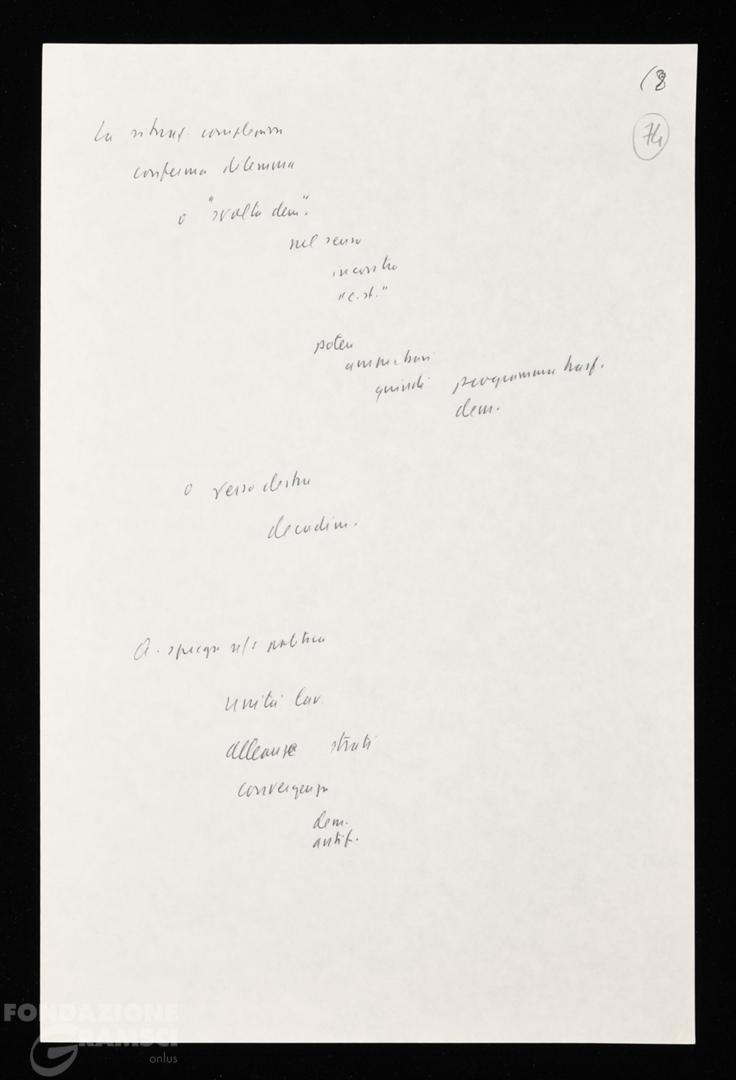 (8
74
La situaz. complessiva
conferma dilemma
o "svolta dem".
nel senso
incontro
"c.st."
poten
quindi programma trasf.
dem.
o verso destra
decadim.
spiega politica
unità lav.
alleanze strati
convergenza
dem.
antif.
FONDAZIONE
GRAMSCI
onlus